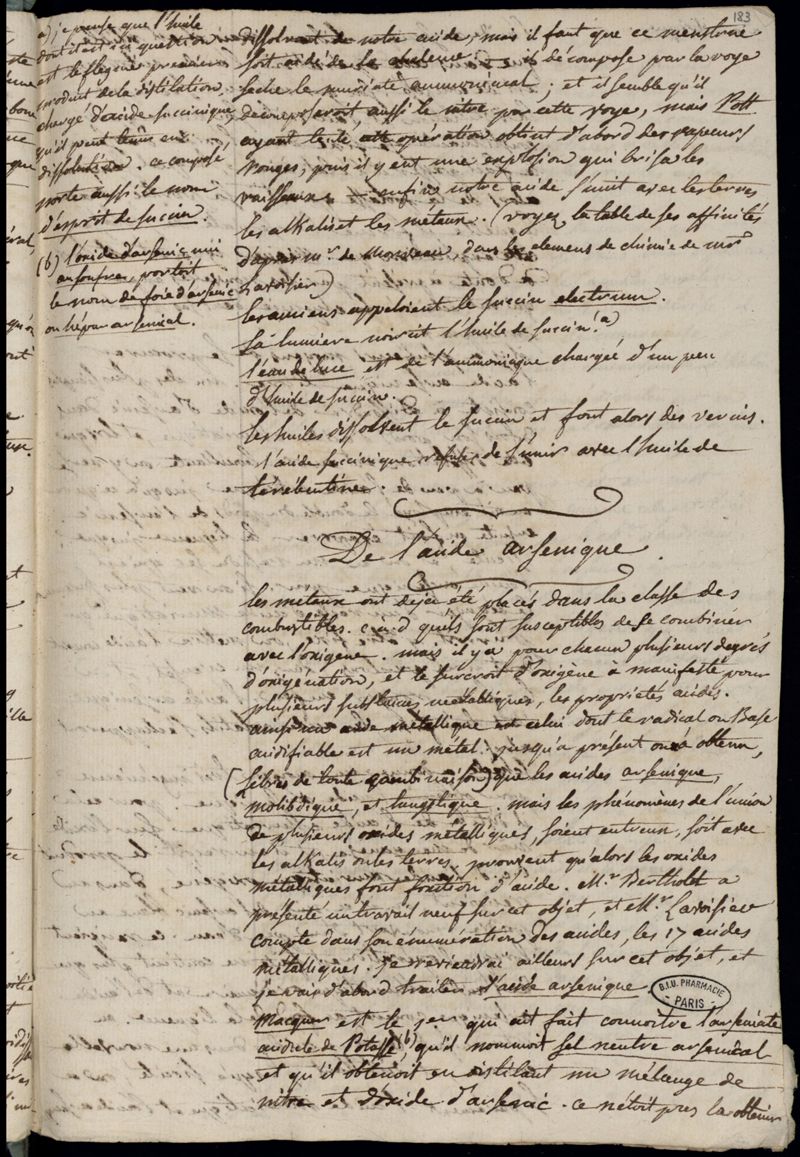 183
a) je pense que l'huile
dont il est ici question
est le flegme premier
produit de la distilation
chargé d'acide succinique
qu'il peut tenir en
dissolution. ce composé
porte aussi le nom
d'esprit de succin.
(b) l'oxide d'arsenic uni
au soufre, portoit
le nom de foie d'arsenic
ou hépar arsenical.
dissolvant de notre acide, mais il faut que ce menstrue
soit aidé de la chaleur. il décompose par la voye
seche le muriate ammoniacal; et il semble qu'il
decomposeroit aussi le nitre par cette voye, mais Pott
ayant tenté cette operation obtint d'abord des vapeurs
rouges, puis il y eut une explosion qui brisa les
vaisseaux. enfin notre acide s'unit avec les terres
les alkalis et les metaux. (voyez la table de ses affinités
d'après mr. de Morveau, dans les elemens de chimie de mr
Lavoisier)
les anciens appeloient le succin electrum.
la lumiere noircit l'huile de succin. (a)
l'eau de luce est de l'ammoniaque chargée d'un peu
d'huile de succin.
les huiles dissolvent le succin et font alors des vernis.
l'acide succinique refuse de s'unir avec l'huile de
térébentine.
De l'acide arsenique.
les metaux ont deja été placés dans la classe des
combustibles. c. a. d qu'ils sont susceptibles de se combiner
avec l'oxigene. mais il y a pour chacun plusieurs degrés
d'oxigénation, et le surcroit d'oxigène a manifesté pour
plusieurs substances metalliques, les propriétés acides.
ainsi un acide métallique est celui dont le radical ou Base
acidifiable est un métal. jusqu'a présent on a obtenu,
(libres de toute combinaison) que les acides arsenique,
molibdique, et tungstique. mais les phénomènes de l'union
de plusieurs oxides métalliques, soient entreux, soit avec
les alkalis ou les terres, prouvent qu'alors les oxides
métalliques font fonction d'acide. Mr. Bertholet a
présenté un travail neuf sur cet objet, et Mr. Lavoisier
compte dans son énumération des acides, les 17 acides
métalliques. je reviendrai ailleurs sur cet objet, et
je vais d'abord traiter l'acide arsenique
B.I.U. PHARMACIE
PARIS
Macquer est le 1er qui ait fait connoitre l'arseniate
acidule de Potasse (b), qu'il nommoit sel neutre arsenical
et qu'il obtenoit en distilant un mélange de
nitre et d'oxide d'arsenic. ce n'étoit pas la obtenir